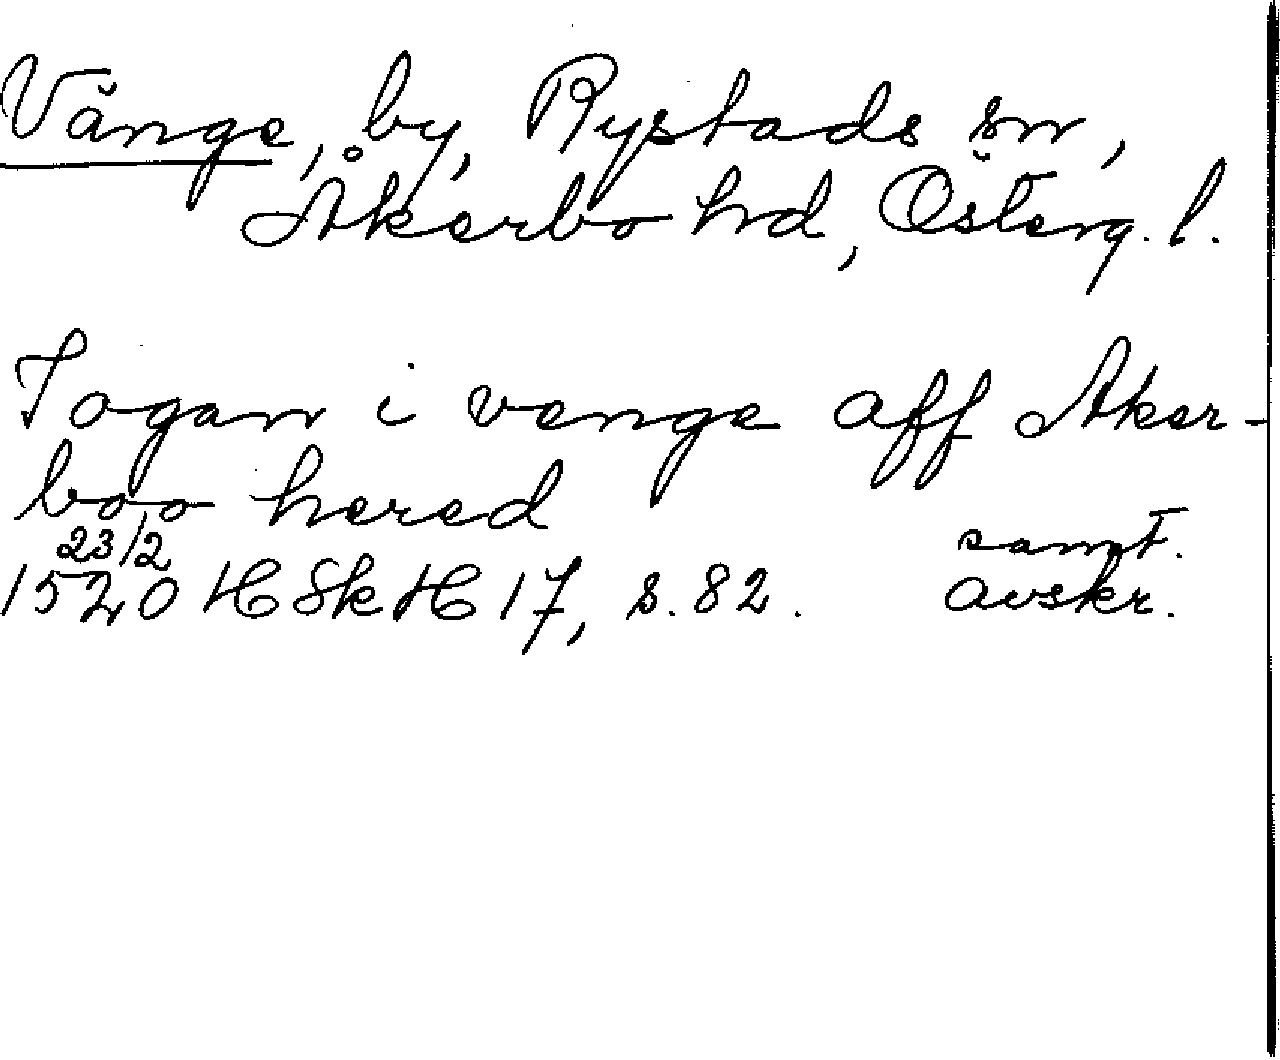 Vänge, by, Rystads sn,
Åkerbo hd, Österg. l.
Jogan i venge aff Aker-
boo hered
23/2 samt.
1520 H Sk H 17, s. 82. avskr.